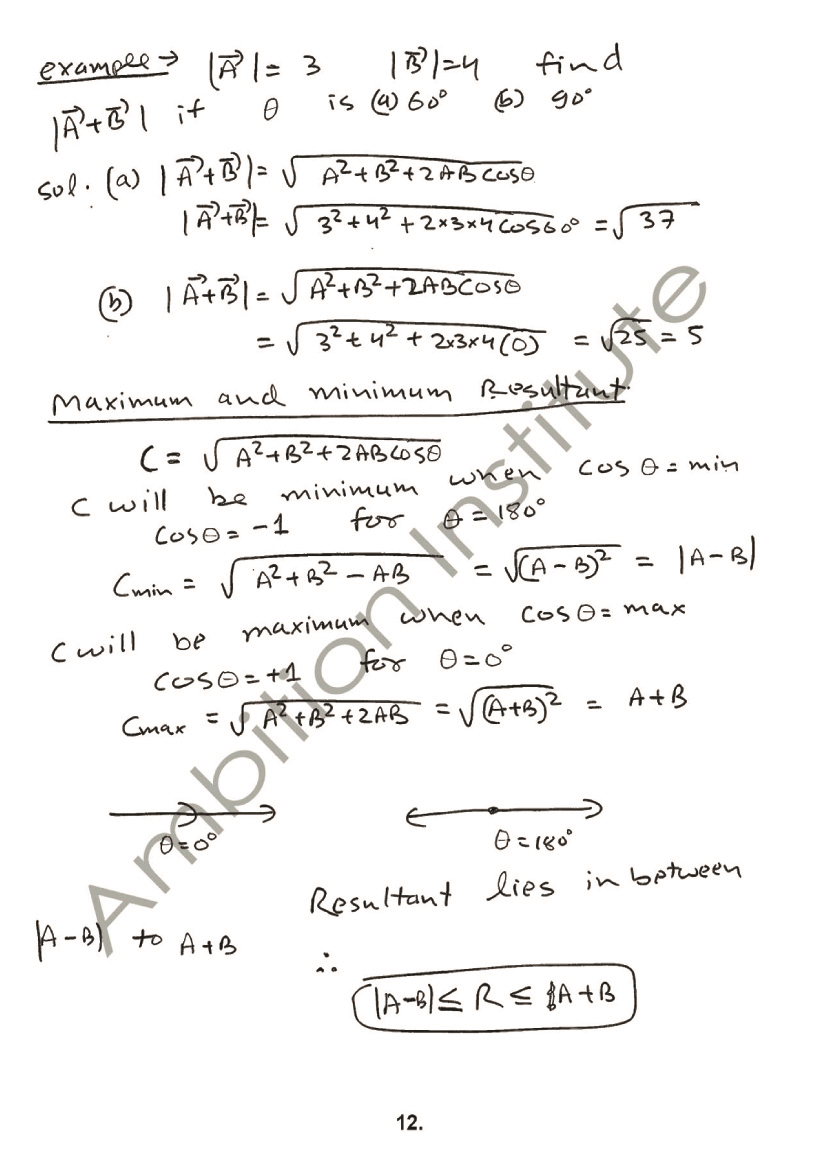 example → |A⃗| = 3 |B⃗| = 4 find
|A⃗+B⃗| if θ is (a) 60° (b) 90°
sol. (a) |A⃗+B⃗| = √(A²+B²+2ABcosθ)
|A⃗+B⃗| = √(3²+4²+2×3×4cos60°) = √37
(b) |A⃗+B⃗| = √(A²+B²+2ABCosθ)
= √(3²+4²+2×3×4(0)) = √25 = 5
Maximum and minimum Resultant.
C = √(A²+B²+2ABcosθ)
C will be minimum when cosθ = min
cosθ = -1 for θ = 180°
Cmin = √(A²+B²-AB) = √(A-B)² = |A-B|
C will be maximum when cosθ = max
cosθ = +1 for θ = 0°
Cmax = √(A²+B²+2AB) = √(A+B)² = A+B
θ = 0° θ = 180°
Resultant lies in between
|A-B| to A+B
∴
|A-B| ≤ R ≤ A+B
12.
Ambition Institute